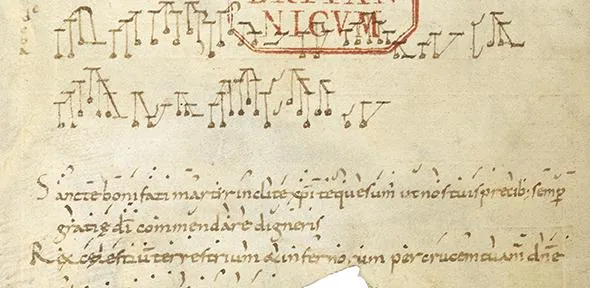 BRITAN
NICVM
Sancte bonifati martir inclite xp̄i te quesum̄ ut nos tuis precib; semp̄
gratię dī commendare digneris
Rex cęlestiū terrestrium & infernorum per crucem tuam dn̄e